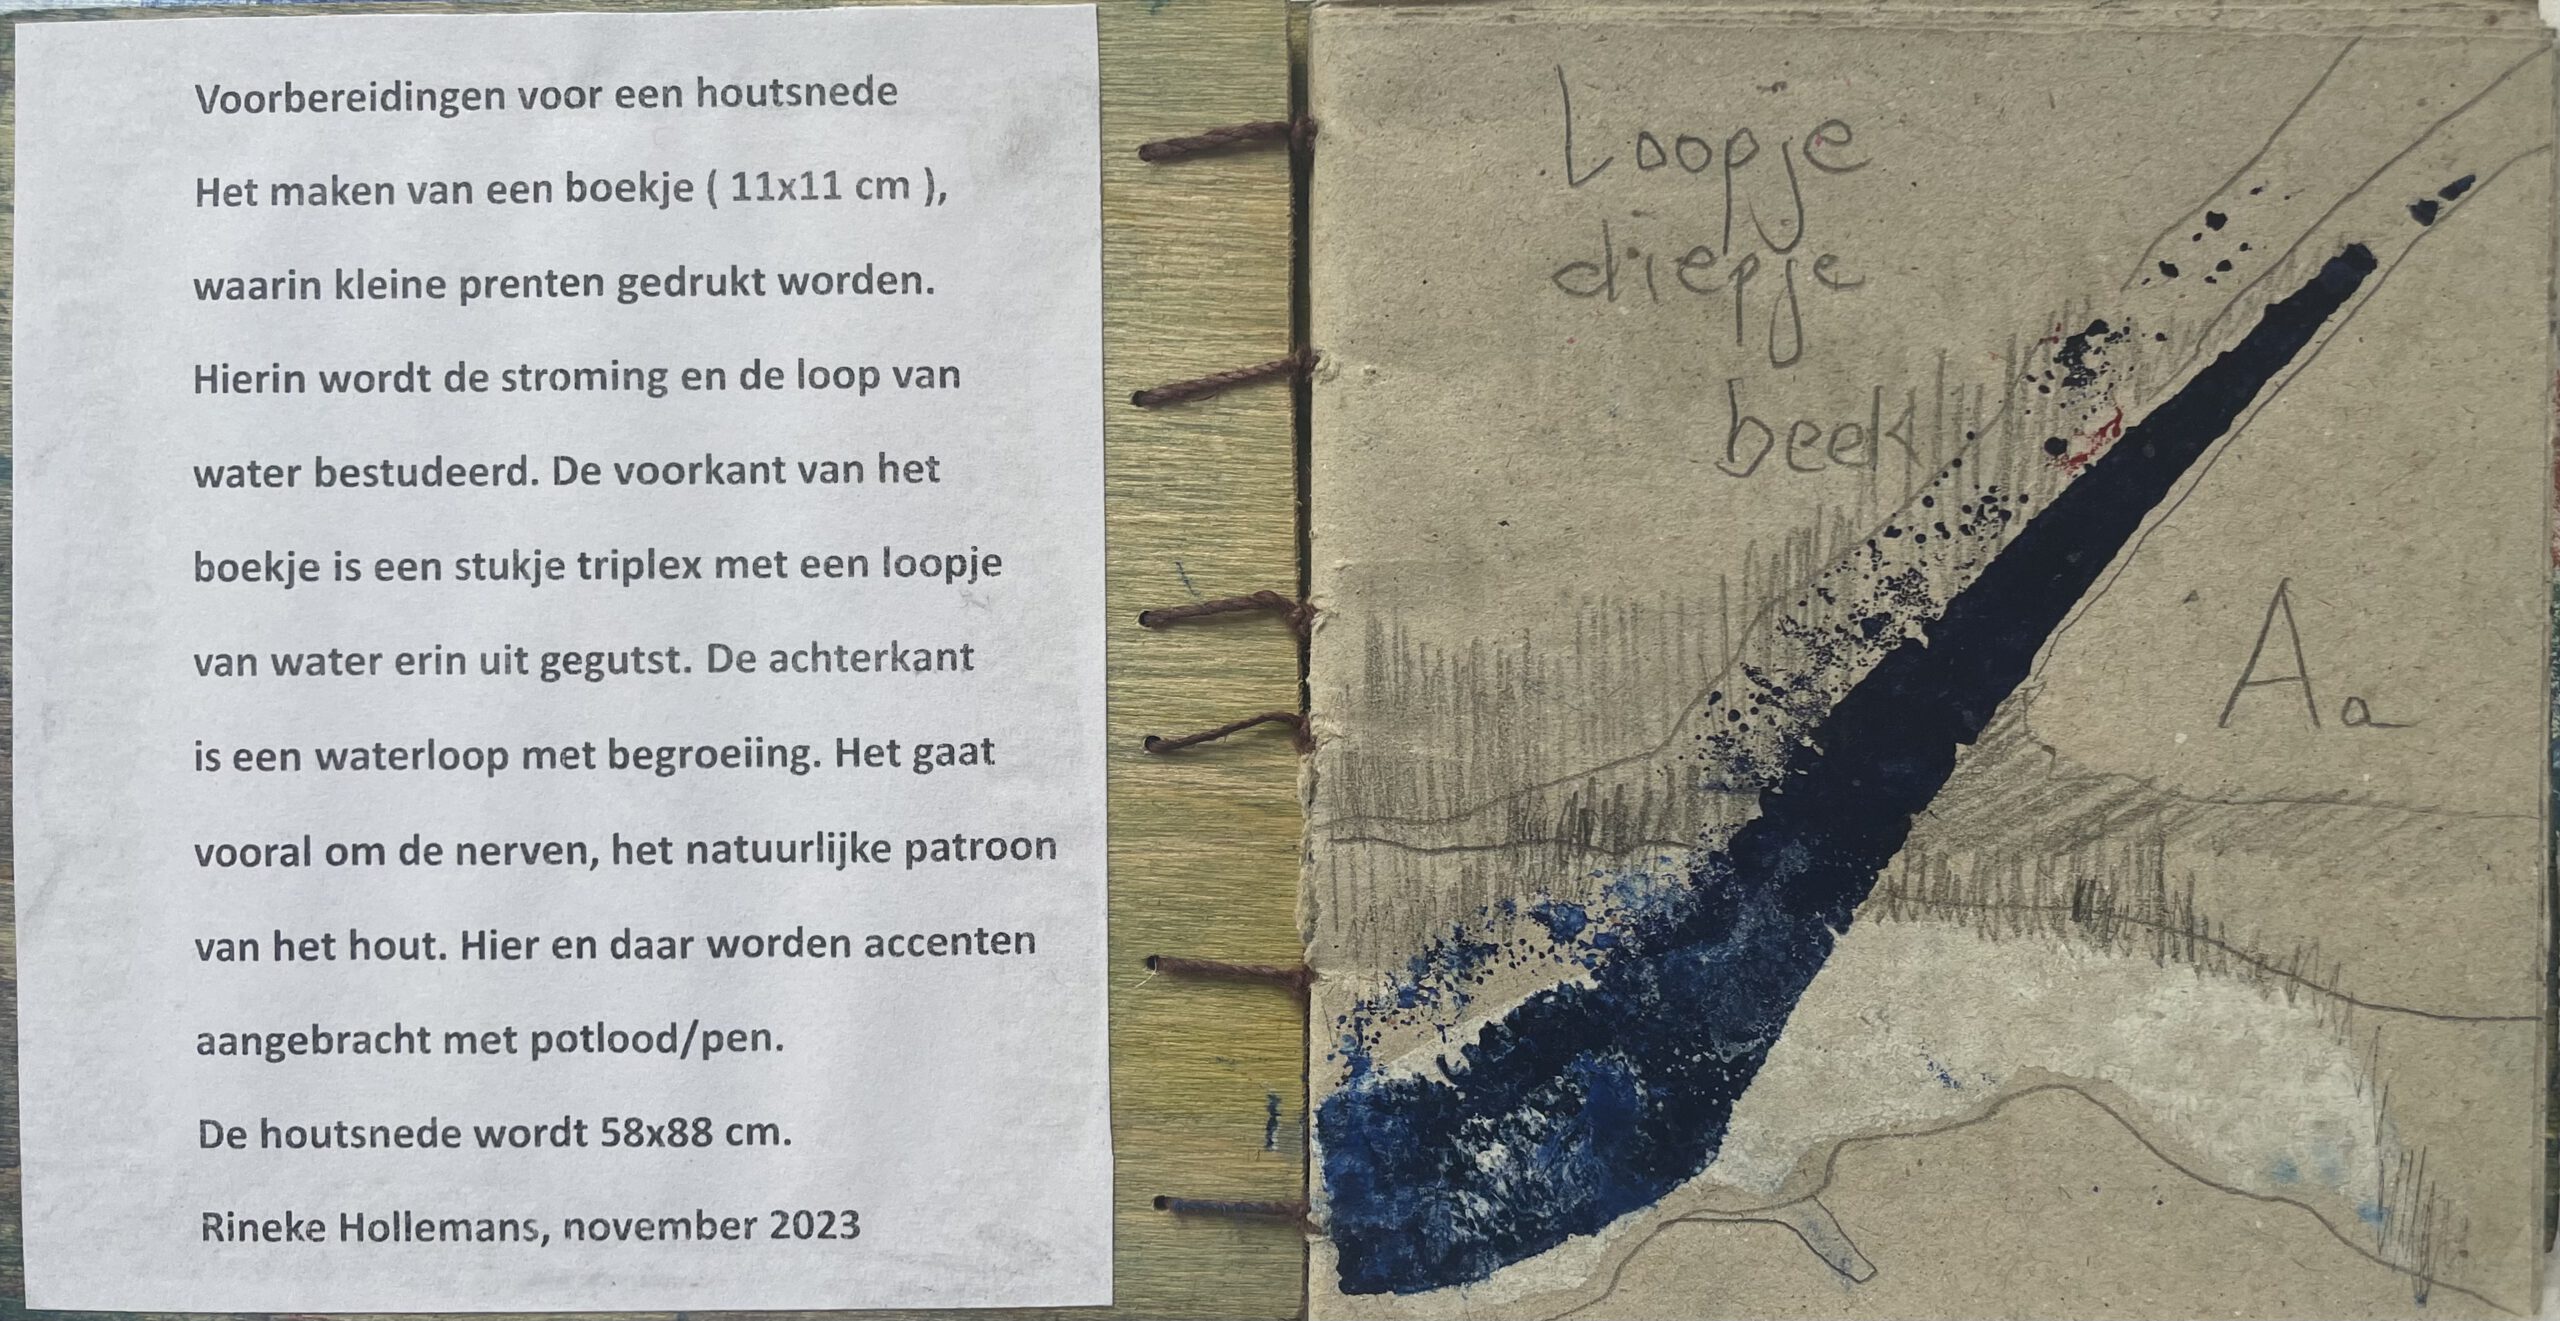 Voorbereidingen voor een houtsnede
Het maken van een boekje ( 11x11 cm ),
waarin kleine prenten gedrukt worden.
Hierin wordt de stroming en de loop van
water bestudeerd. De voorkant van het
boekje is een stukje triplex met een loopje
van water erin uit gegutst. De achterkant
is een waterloop met begroeiing. Het gaat
vooral om de nerven, het natuurlijke patroon
van het hout. Hier en daar worden accenten
aangebracht met potlood/pen.
De houtsnede wordt 58x88 cm.
Rineke Hollemans, november 2023
Loopje
diepje
beek
Aa